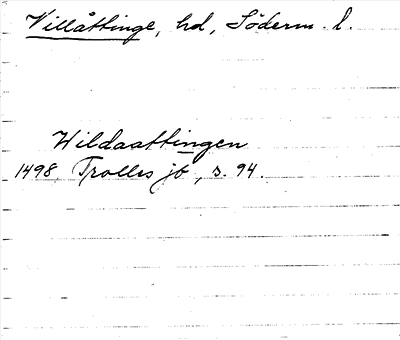 Villåttinge, hd, Söderm. l.
Wildaattingen
1498 Trolles jb, s. 94.